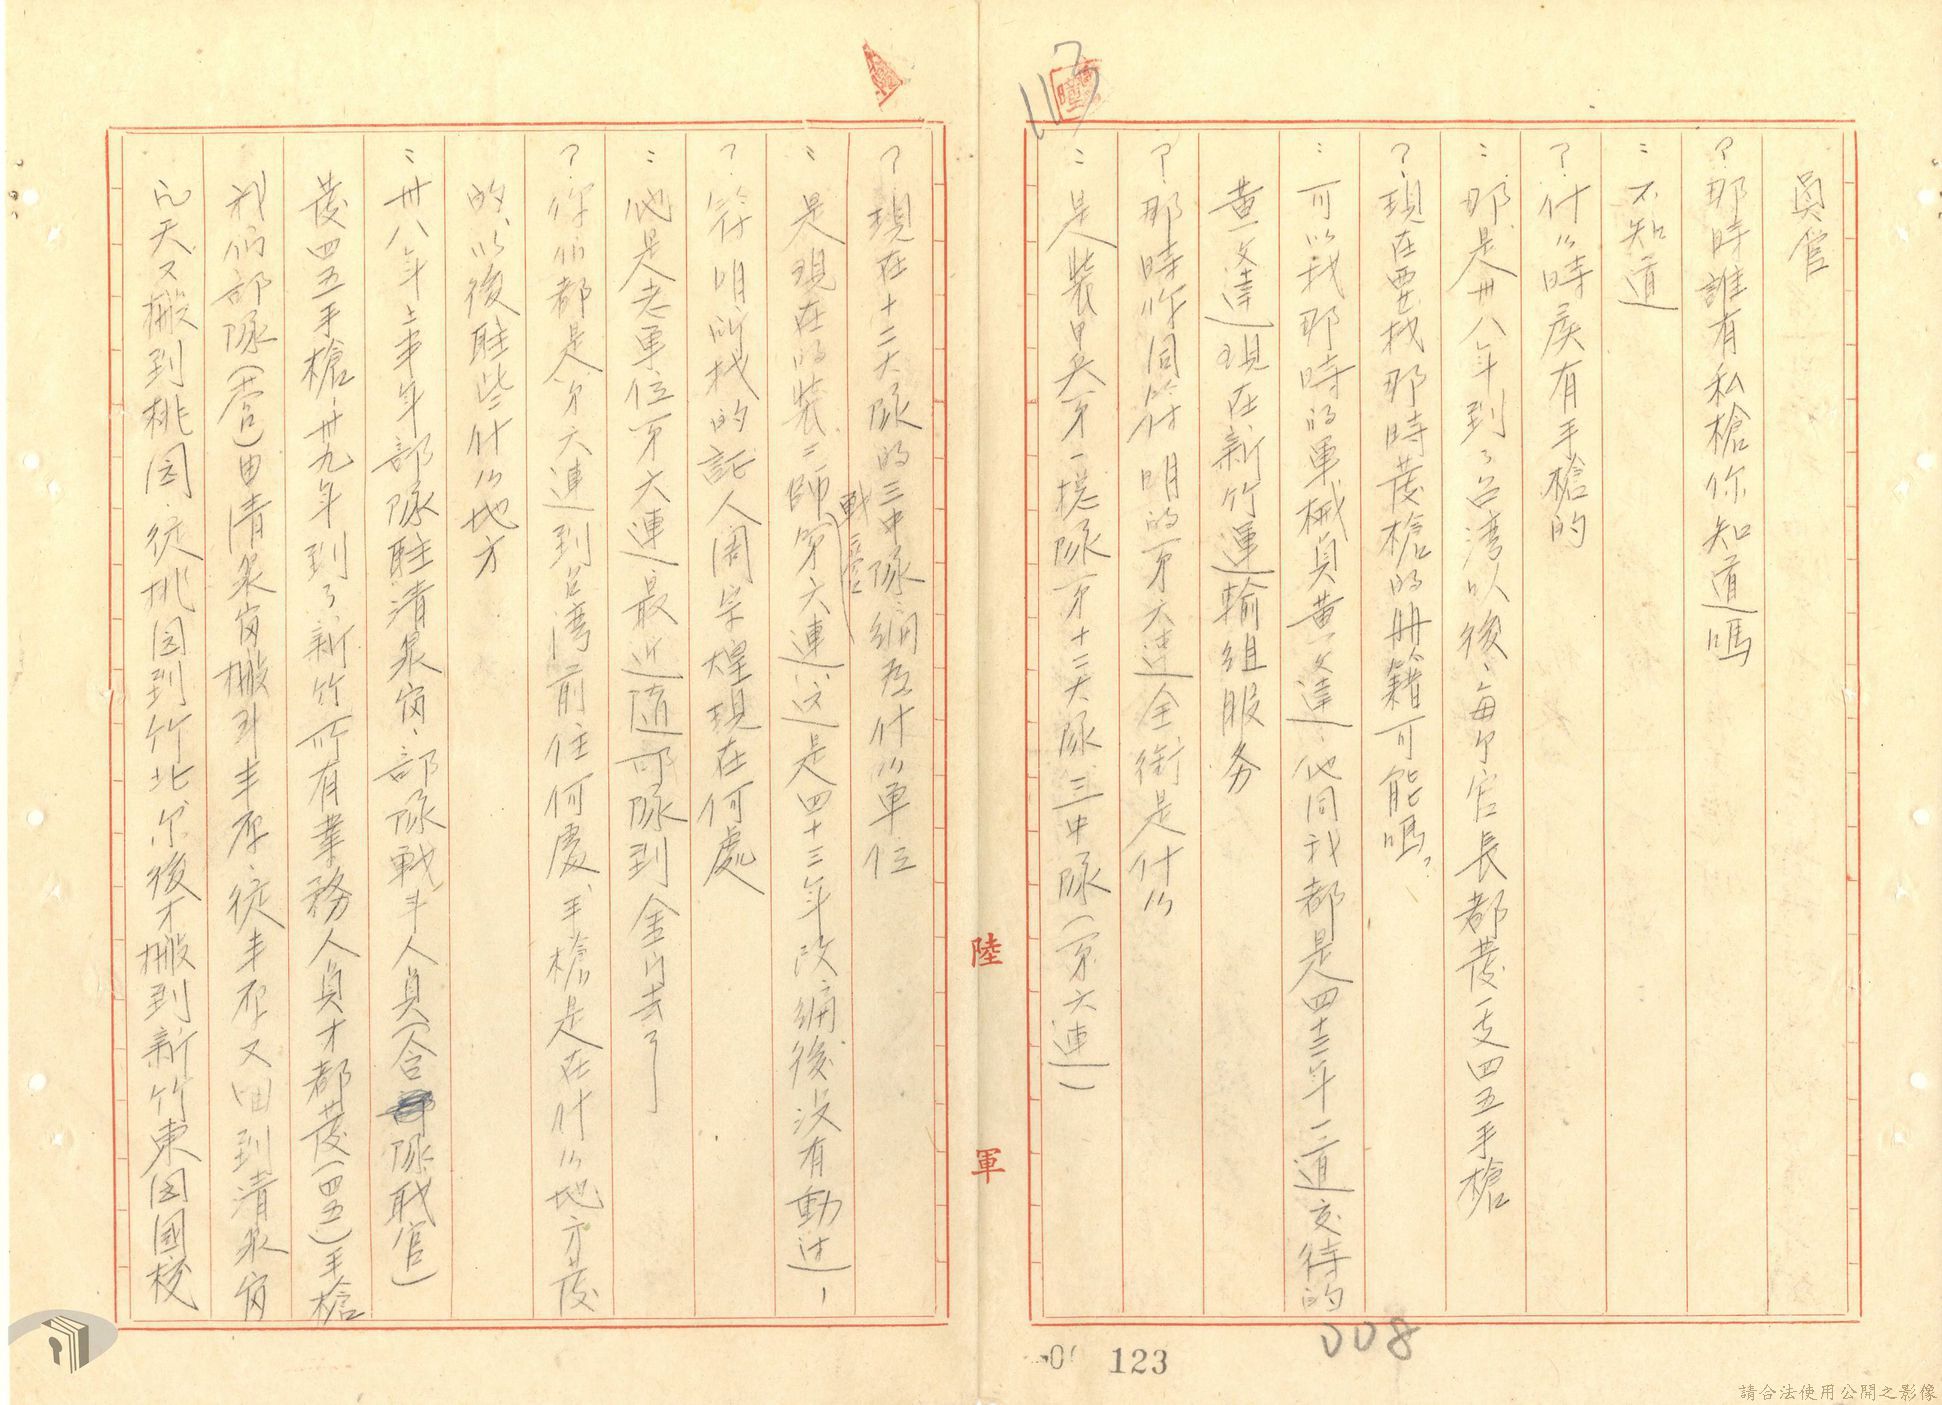 員官
?那時誰有私槍你知道嗎
:不知道
?什么時侯有手槍的
:那是卅八年到了台湾以後、每个官長都發一支四五手槍
?現在要找那時發槍的册籍可能嗎?
:可以找那時的軍械員黃文達、他同我都是四十三年一道交待的
黃文達現在新竹運輸組服务
?那時你同符明的第六連全銜是什么
:是裝甲兵第一總隊第十二大隊三中隊(第六連)
?現在十二大隊的三中隊編為什么單位
:是現在的裝二師第六連、這是四十三年改編後没有動过,
戰三營
?符明所找的証人闕宗煌現在何處
:他是老單位第六連、最近随部隊到金门去了
?你們都是第六連到台湾前住何處、手槍是在什么地方發
的、以後駐些什么地方
:卅八年上半年部隊駐清泉崗、部隊戰斗人員(含隊职官)
發四五手槍、卅九年到了新竹所有業務人員才都發(四五)手槍
我們部隊(營)由清泉崗搬到丰原、從丰原又回到清泉崗
几天又搬到桃园、從桃园到竹北、尔後才搬到新竹東园國校
陸軍
113
008
123
請合法使用公開之影像